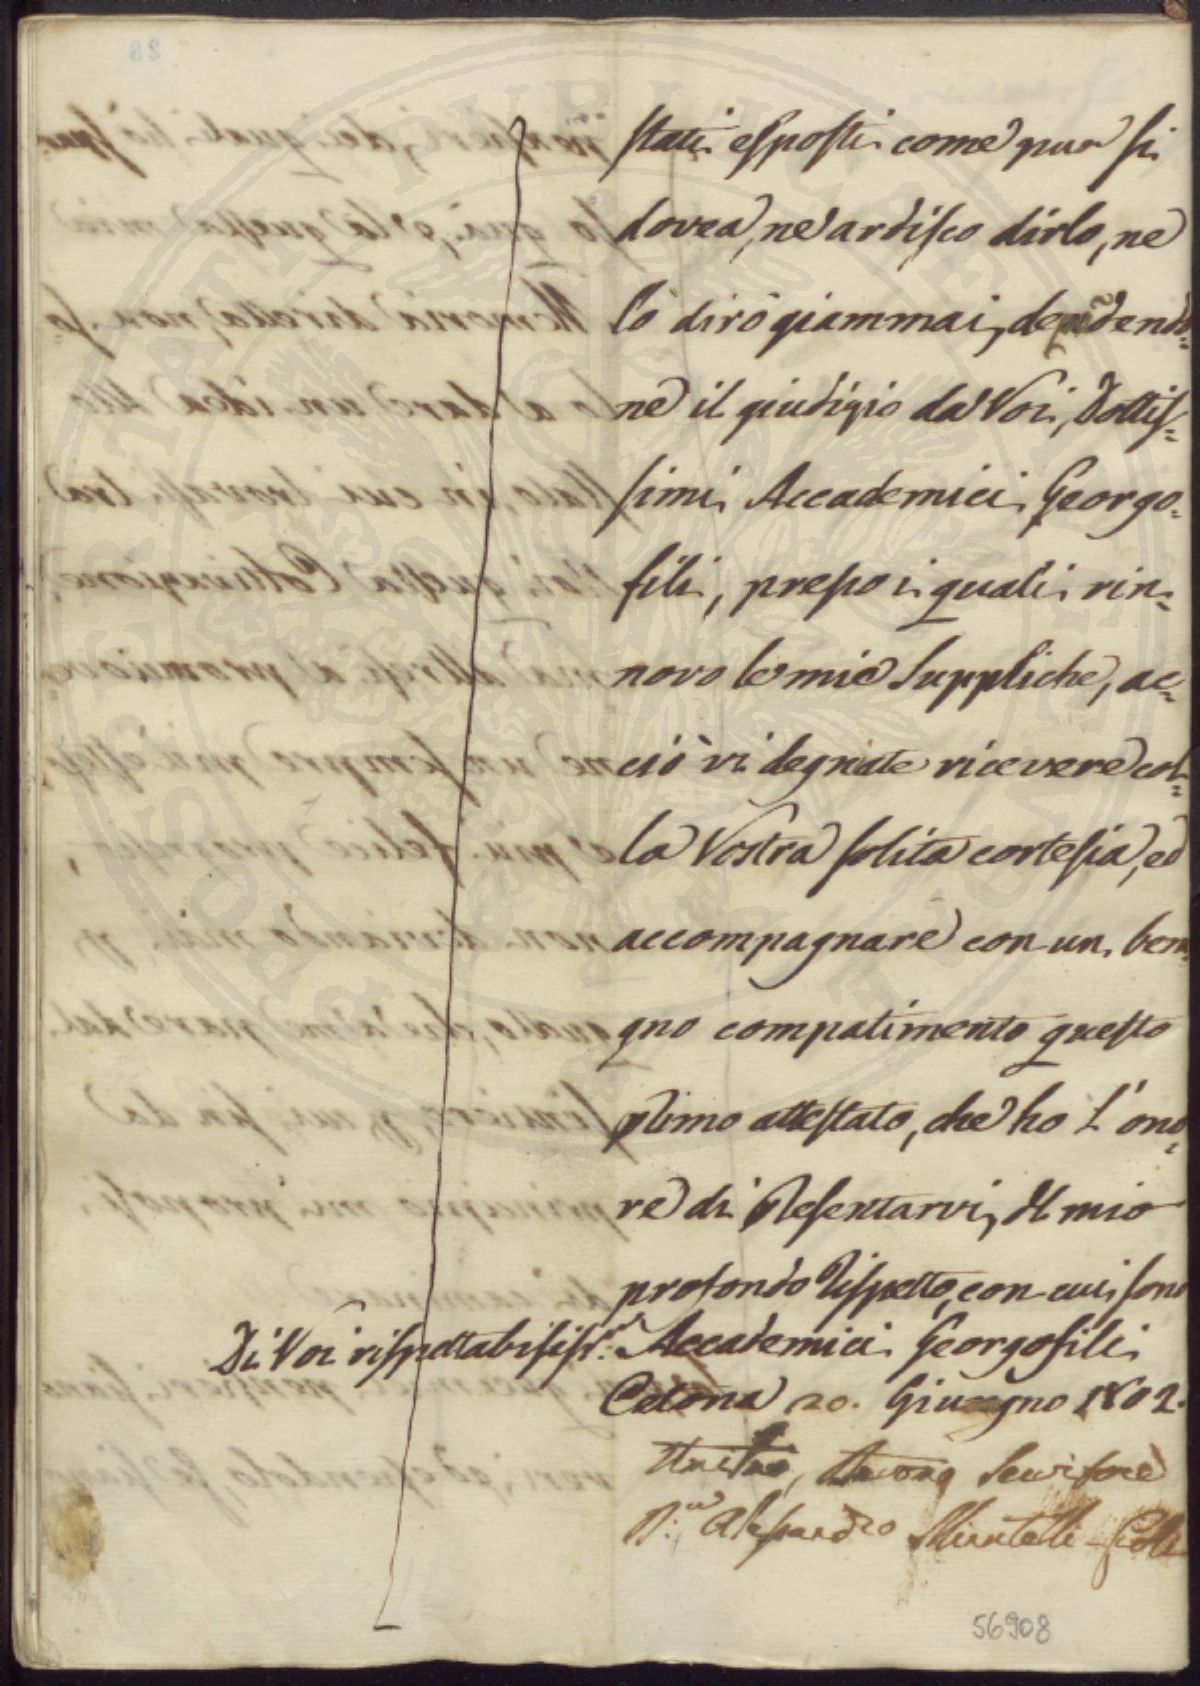 stati esposti come pur si
dovea, ne ardisco dirlo, ne
lo dirò giammai, dependendo=
ne il giudizio da Voi, Dottis=
simi Accademici Georgo=
fili, presso i quali rin=
novo le mie Suppliche, ac=
ciò vi degniate ricevere col=
la Vostra solita cortesia, ed
accompagnare con un beni
gno compatimento questo
primo attestato, che ho l'ono=
re di Presentarvi, Il mio
profondo Rispetto, con cui sono
Di Voi rispettabilissi: Accademici Georgofili
Cetona 20. Giugno 1802.
Servitore
Alessandro
56908